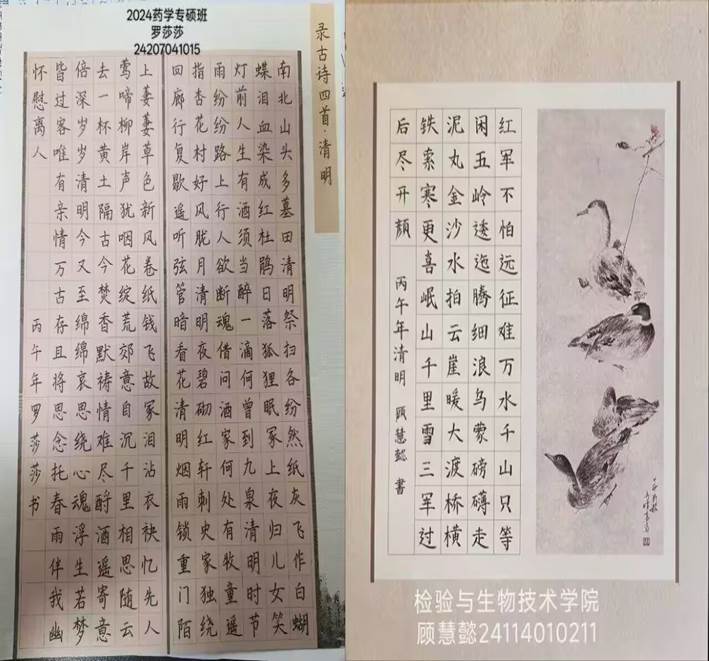 2024药学专硕班
罗莎莎
24207041015
录古诗四首·清明
南北山头多墓田清明祭扫各纷然纸灰飞作白蝴
蝶泪血染成红杜鹃日落狐狸眠冢上夜归儿女笑
灯前人生有酒须当醉一滴何曾到九泉清明时节
雨纷纷路上行人欲断魂借问酒家何处有牧童遥
指杏花村好风胧月清明夜碧砌红轩刺史家独绕
回廊行复歇遥听弦管暗看花清明烟雨锁重门陌
上萋萋草色新风卷纸钱飞故冢泪沾衣袂忆先人
莺啼柳岸声犹咽花绽荒郊意自沉千里相思随云
去一杯黄土隔古今焚香默祷情难尽酹酒遥寄意
倍深岁岁清明今又至绵绵哀思绕心魂浮生若梦
皆过客唯有亲情万古存且将思念托春雨伴我幽
怀慰离人 丙午年罗莎莎书
红军不怕远征难万水千山只等
闲五岭逶迤腾细浪乌蒙磅礴走
泥丸金沙水拍云崖暖大渡桥横
铁索寒更喜岷山千里雪三军过
后尽开颜
丙午年清明 顾慧懿 书
检验与生物技术学院
顾慧懿24114010211